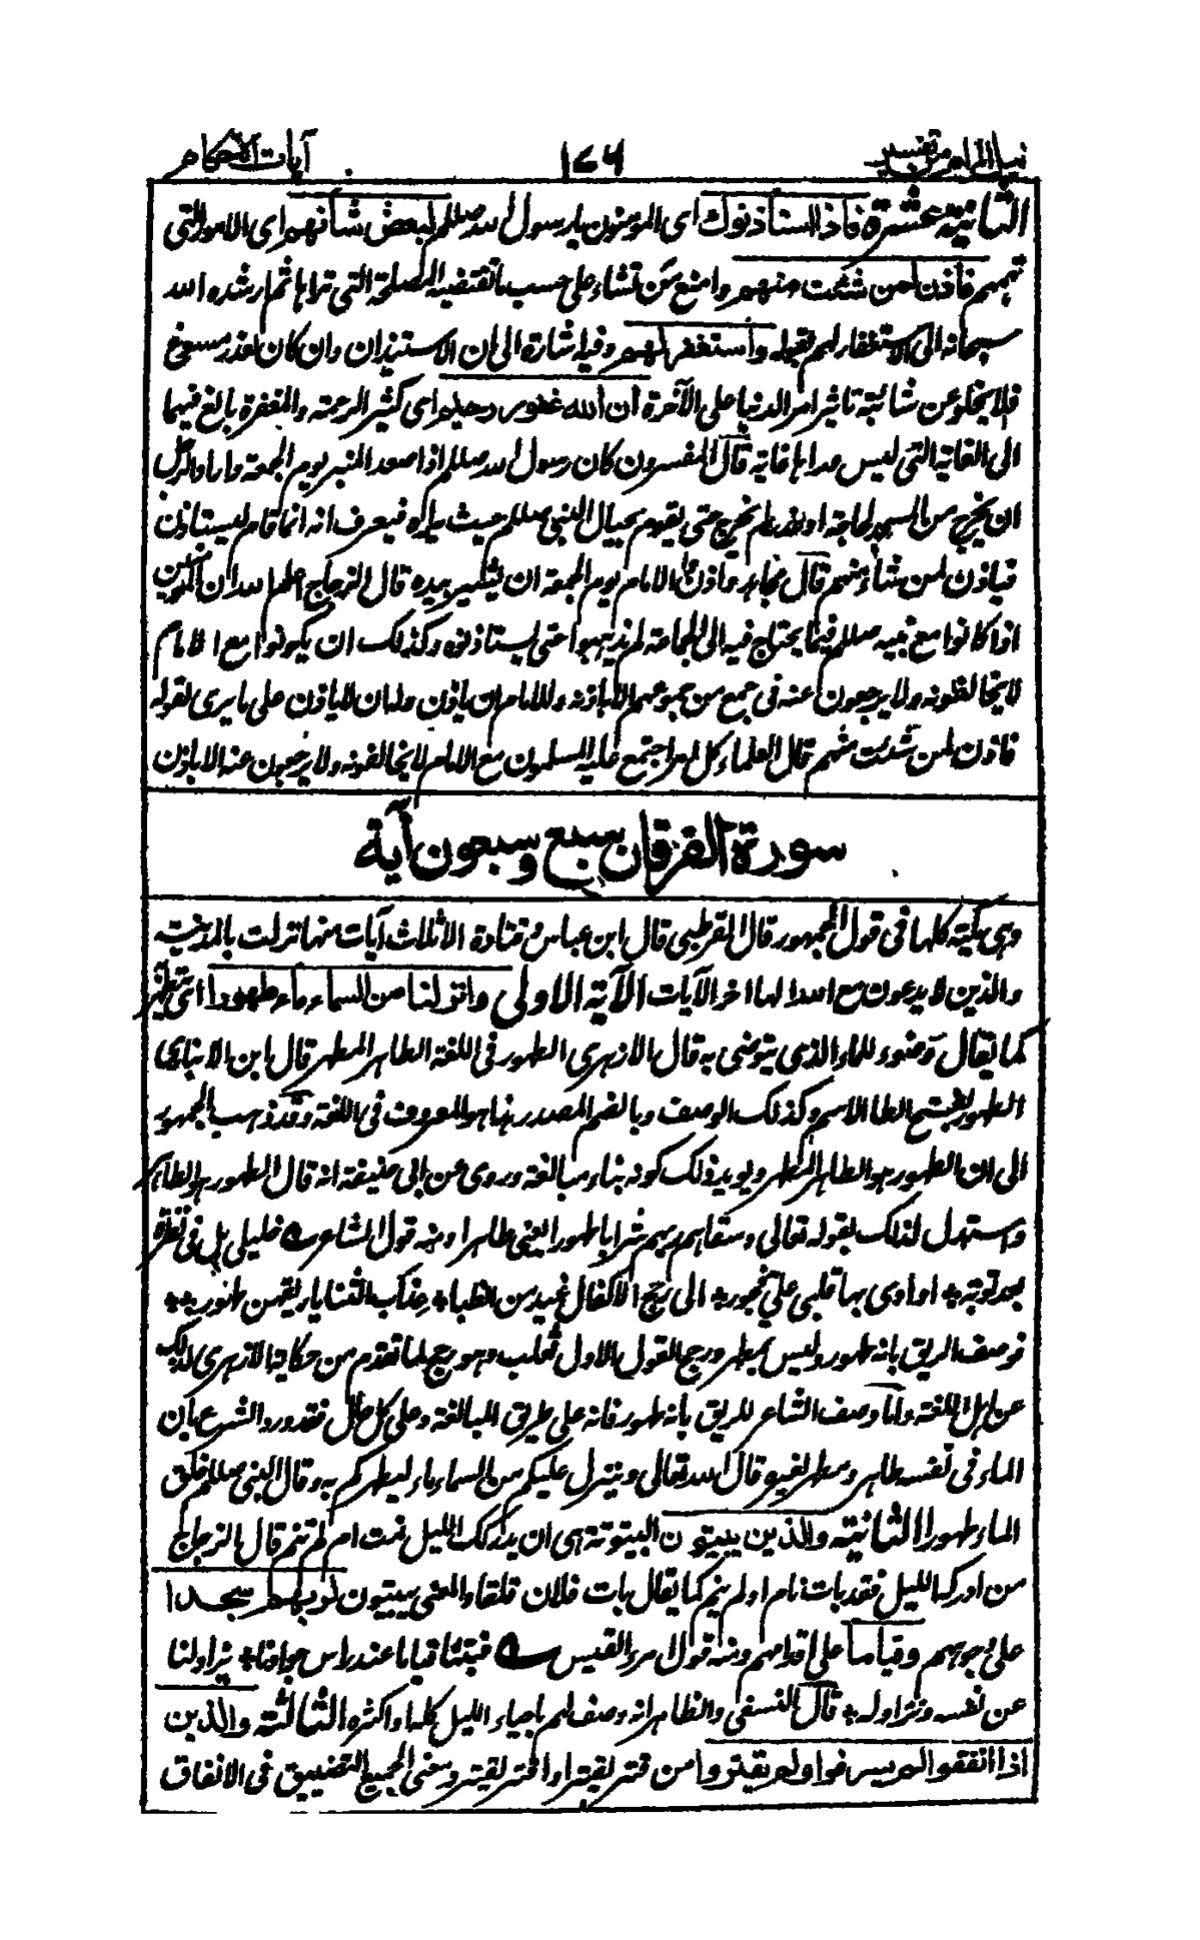 نيل المرام من تفسير ١٧٦ آيات الأحكام
الثانية عشرة فاذا استأذنوك اى المومنون يا رسول الله صللم لبعض شأنهم اى الامور التى
تهمهم فأذن لمن شئت منهم وامنع من تشاء على حسب ما تقتضيه المصلحة التى تراها ثم ارشده الله
سبحانه الى الاستغفار لهم بقوله واستغفر لهم وفيه اشارة الى ان الاستيذان وان كان لعذر مسوغ
فلا يخلو عن شائبة تاثير امر الدنيا على الآخرة ان الله غفور رحيم اى كثير الرحمة والمغفرة بالغ فيهما
الى الغاية التى ليس وراءها غاية قال المفسرون كان رسول الله صللم اذا صعد المنبر يوم الجمعة واراد الرجل
ان يخرج من المسجد لحاجة او عذر لم يخرج حتى يقوم بحيال النبى صللم حيث يراه فيعرف انه انما قام ليستاذن
فياذن لمن شاء منهم قال مجاهد واذن الامام يوم الجمعة ان يشير بيده قال الزجاج اعلم الله ان المومنين
اذا كانوا مع نبيه صللم فيما يحتاج فيه الى الجماعة لم يذهبوا حتى يستاذنوه وكذلك ان يكونوا مع الامام
لا يخالفونه ولا يرجعون عنه فى جمع من جموعهم الا باذنه وللامام ان ياذن وله ان لا ياذن على ما يرى لقوله
فاذن لمن شئت منهم قال العلماء كل امر اجتمع عليه المسلمون مع الامام لا يخالفونه ولا يرجعون عنه الا باذن
سورة الفرقان سبع وسبعون آية
وهى مكية كلها فى قول الجمهور قال القرطبى قال ابن عباس وقتادة الا ثلاث آيات منها نزلت بالمدينة
والذين لا يدعون مع الله الها اخر الآيات الآية الاولى وانزلنا من السماء ماء طهورا اى يتطهر
كما يقال وضوء للماء الذى يتوضى به قال الازهرى الطهور فى اللغة الطاهر المطهر قال ابن الانبارى
الطهور بفتح الطا الاسم وكذلك الوصف وبالضم المصدر هذا هو المعروف فى اللغة وقد ذهب الجمهور
الى ان الطهور هو الطاهر المطهر ويويد ذلك كونه بناء مبالغة وروى عن ابى حنيفة انه قال الطهور هو الطاهر
واستدل لذلك بقوله تعالى وسقاهم ربهم شرابا طهورا يعنى طاهرا ومنه قول الشاعر ؎ خليلى هل فى نظرة
بعد توبة * اداوى بها قلبى على فجور * الى رجح الاكفال غيد من الظباء * عذاب الثنايا ريقهن طهور **
فوصف الريق بانه طهور وليس بمطهر ورجح القول الاول ثعلب وهو راجح لما تقدم من حكاية الازهرى لذلك
عن اهل اللغة واما وصف الشاعر للريق بانه طهور فانه على طريق المبالغة وعلى كل حال فقد ورد الشرع بان
الماء فى نفسه طاهر ومطهر لغيره قال الله تعالى وينزل عليكم من السماء ماء ليطهركم به وقال النبى صللم خلق
الماء طهورا الثانية والذين يبيتون البيتوتة هى ان يدركك الليل نمت ام لم تنم قال الزجاج
من ادركه الليل فقد بات نام او لم ينم كما يقال بات فلان قلقا والمعنى يبيتون لربهم سجدا
على وجوههم وقياما على اقدامهم ومنه قول امرء القيس ؎ فبتنا قياما عند راس جوادنا * يزاولنا
عن نفسه ونزاوله * قال النسفى والظاهر انه وصف لهم باحياء الليل كله او اكثره الثالثة والذين
اذا انفقوا لم يسرفوا ولم يقتروا من قتر يقتر او اقتر يقتر ومعنى الجميع التضييق فى الانفاق